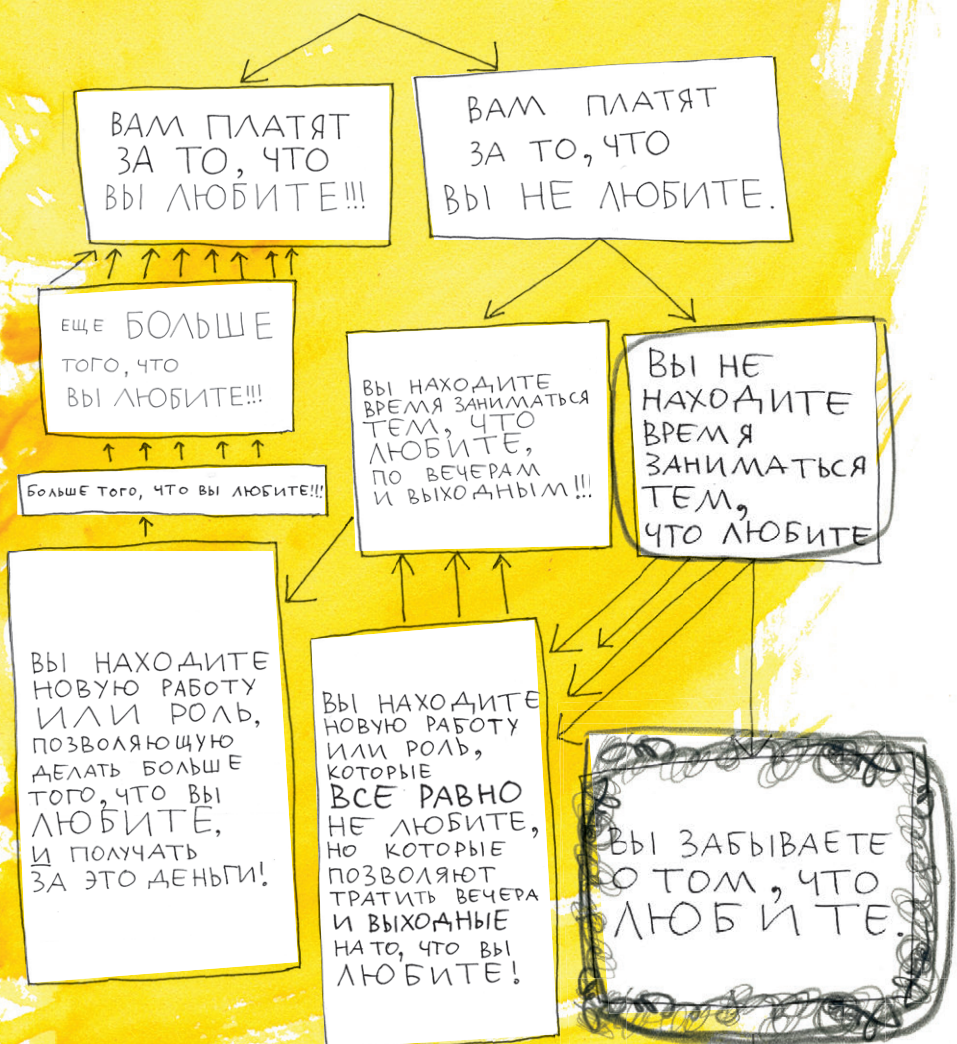 ВАМ ПЛАТЯТ
ЗА ТО, ЧТО
ВЫ ЛЮБИТЕ!!!
ВАМ ПЛАТЯТ
ЗА ТО, ЧТО
ВЫ НЕ ЛЮБИТЕ.
ЕЩЕ БОЛЬШЕ
ТОГО, ЧТО
ВЫ ЛЮБИТЕ!!!
ВЫ НАХОДИТЕ
ВРЕМЯ ЗАНИМАТЬСЯ
ТЕМ, ЧТО
ЛЮБИТЕ,
ПО ВЕЧЕРАМ
И ВЫХОДНЫМ!!!
ВЫ НЕ
НАХОДИТЕ
ВРЕМЯ
ЗАНИМАТЬСЯ
ТЕМ,
ЧТО ЛЮБИТЕ
БОЛЬШЕ ТОГО, ЧТО ВЫ ЛЮБИТЕ!!!
ВЫ НАХОДИТЕ
НОВУЮ РАБОТУ
ИЛИ РОЛЬ,
ПОЗВОЛЯЮЩУЮ
ДЕЛАТЬ БОЛЬШЕ
ТОГО, ЧТО ВЫ
ЛЮБИТЕ,
И ПОЛУЧАТЬ
ЗА ЭТО ДЕНЬГИ!
ВЫ НАХОДИТЕ
НОВУЮ РАБОТУ
ИЛИ РОЛЬ,
КОТОРЫЕ
ВСЕ РАВНО
НЕ ЛЮБИТЕ,
НО КОТОРЫЕ
ПОЗВОЛЯЮТ
ТРАТИТЬ ВЕЧЕРА
И ВЫХОДНЫЕ
НА ТО, ЧТО ВЫ
ЛЮБИТЕ!
ВЫ ЗАБЫВАЕТЕ
О ТОМ, ЧТО
ЛЮБИТЕ.